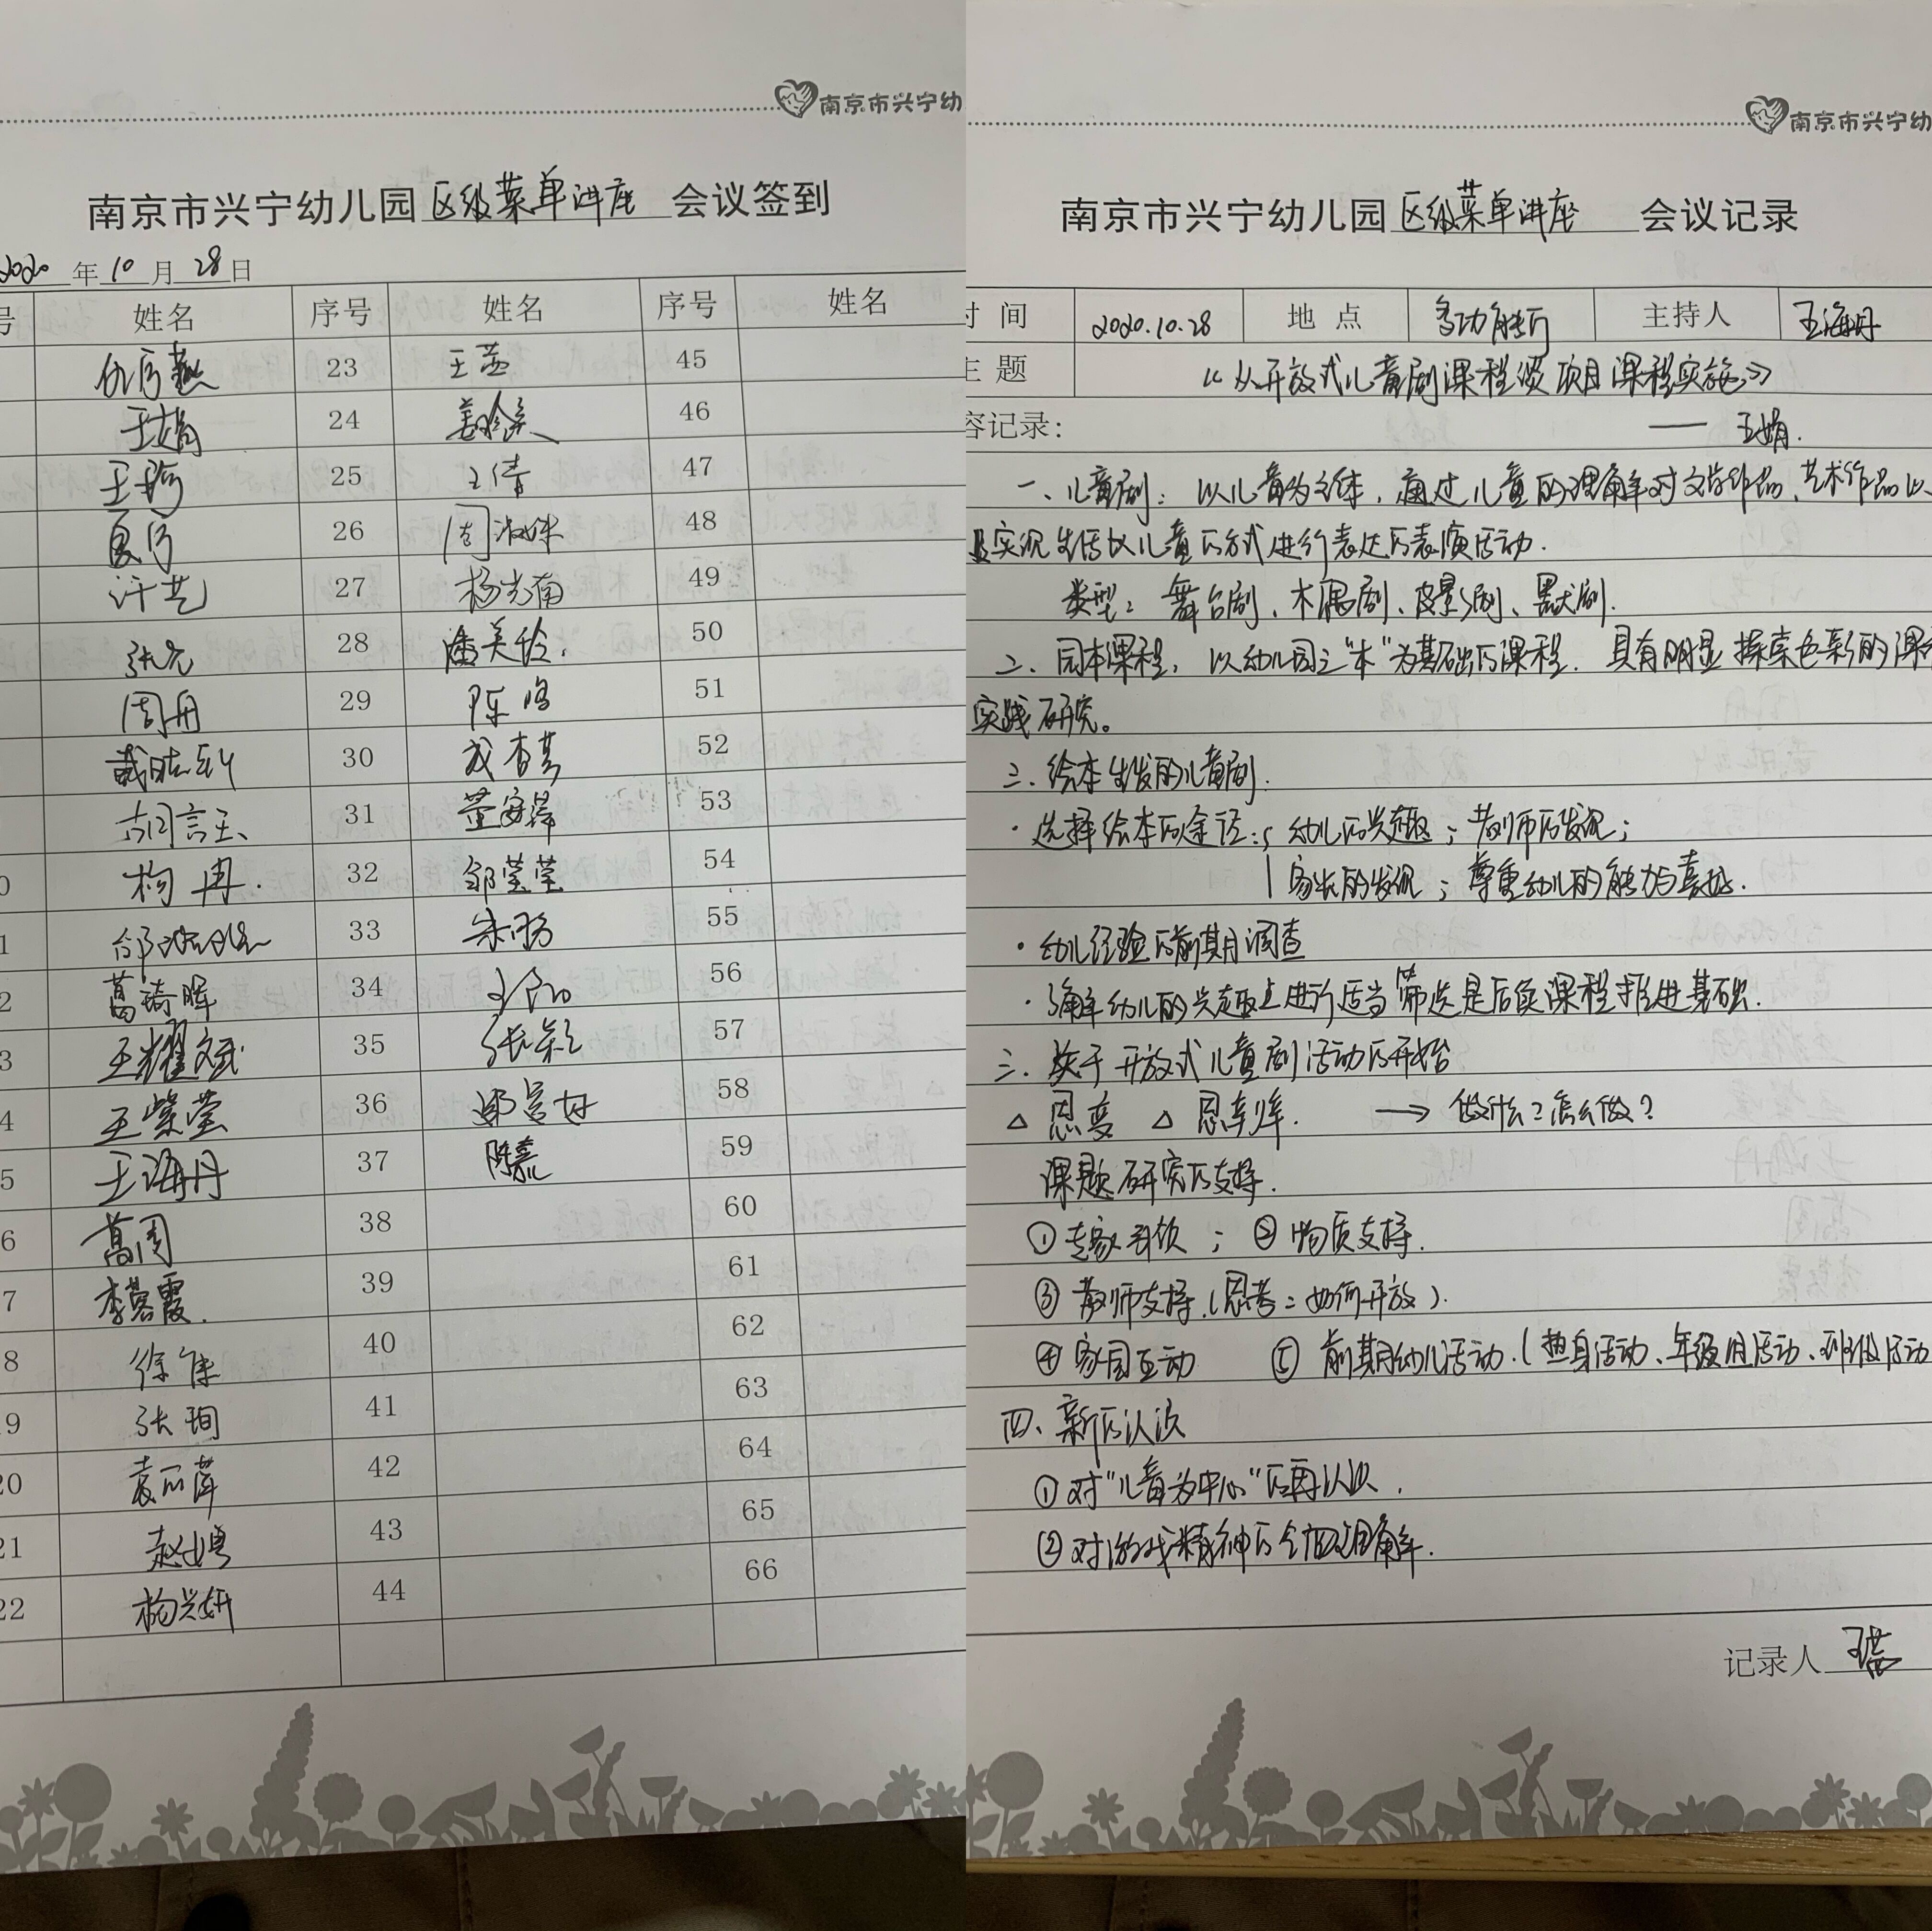 南京市兴宁幼
南京市兴宁幼儿园 区级菜单讲座 会议签到
2020 年 10 月 28 日
号 姓名 序号 姓名 序号 姓名
23 王蕊 45
王娟 24 46
25 王倩 47
夏芳 26 周淑妹 48
许艺 27 杨光南 49
张元 28 潘美玲 50
周丹 29 陈鸣 51
30 52
31 董安泽 53
0 杨冉 32 邹莹莹 54
1 33 55
2 葛琦晖 34 56
3 王耀斌 35 张彩 57
4 王紫莹 36 58
5 王海丹 37 陈嘉 59
6 葛周 38 60
7 李慕霞 39 61
8 徐佳 40 62
9 张珣 41 63
20 袁丽萍 42 64
21 赵娉 43 65
22 杨兴妍 44 66
南京市兴宁幼
南京市兴宁幼儿园 区级菜单讲座 会议记录
时间 2020.10.28 地点 多功能厅 主持人 王海丹
主题 《从开放式儿童剧课程谈项目课程实施》
容记录: —— 王娟.
一、儿童剧: 以儿童为主体,通过儿童的理解对文学作品、艺术作品以
及实况生活以儿童的方式进行表达的表演活动.
类型: 舞台剧、木偶剧、皮影剧、黑光剧.
二、园本课程, 以幼儿园之"本"为基础的课程. 具有明显探索色彩的课程
实践研究。
三、绘本生发的儿童剧.
·选择绘本的途径: 幼儿的兴趣; 教师的发现;
家长的发现; 尊重幼儿的能力与喜好.
·幼儿经验的前期调查
·了解幼儿的兴趣点进行适当筛选是后续课程推进基础.
三、关于开放式儿童剧活动的开始
△ 思变 △ 思难. → 做什么?怎么做?
课题研究的支持.
①专家引领; ②物质支持.
③教师支持.(思考: 如何开放).
④家园互动 ⑤前期幼儿活动.(热身活动、年级组活动、班级活动
四、新的认识
①对"儿童为中心"的再认识.
②对游戏精神的全面理解.
记录人 王蕊